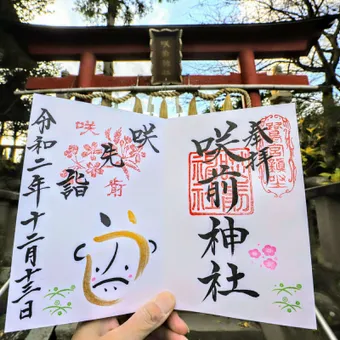 奉拝
咲前神社
咲
先
詣
咲
前
令和二年十二月十三日